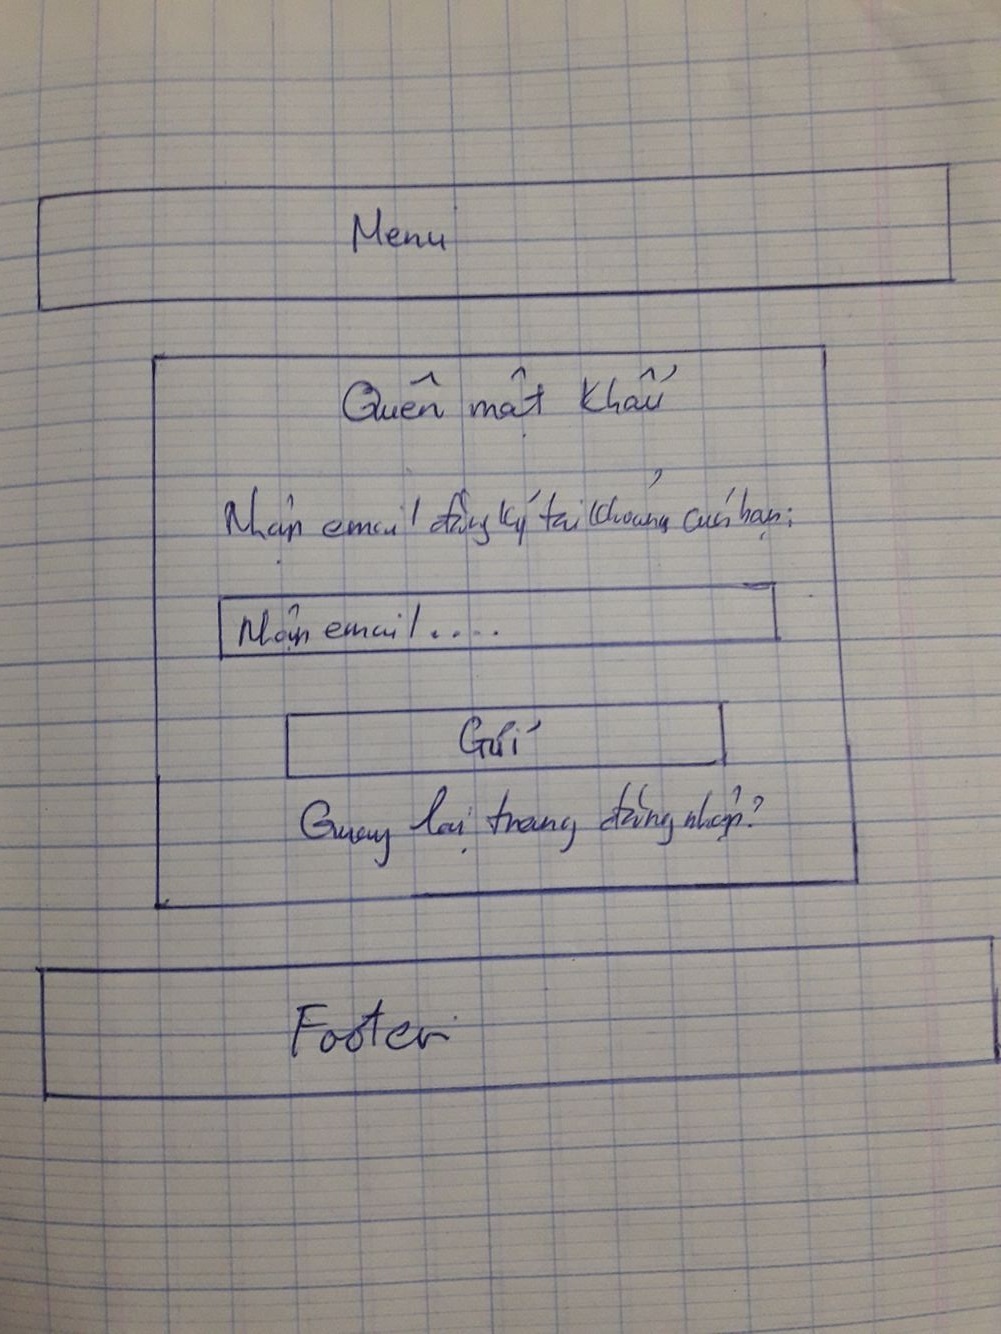 Menu
Quên mật khẩu
Nhập email đăng ký tài khoảng của bạn:
Nhập email....
Gửi
Quay lại trang đăng nhập?
Footer